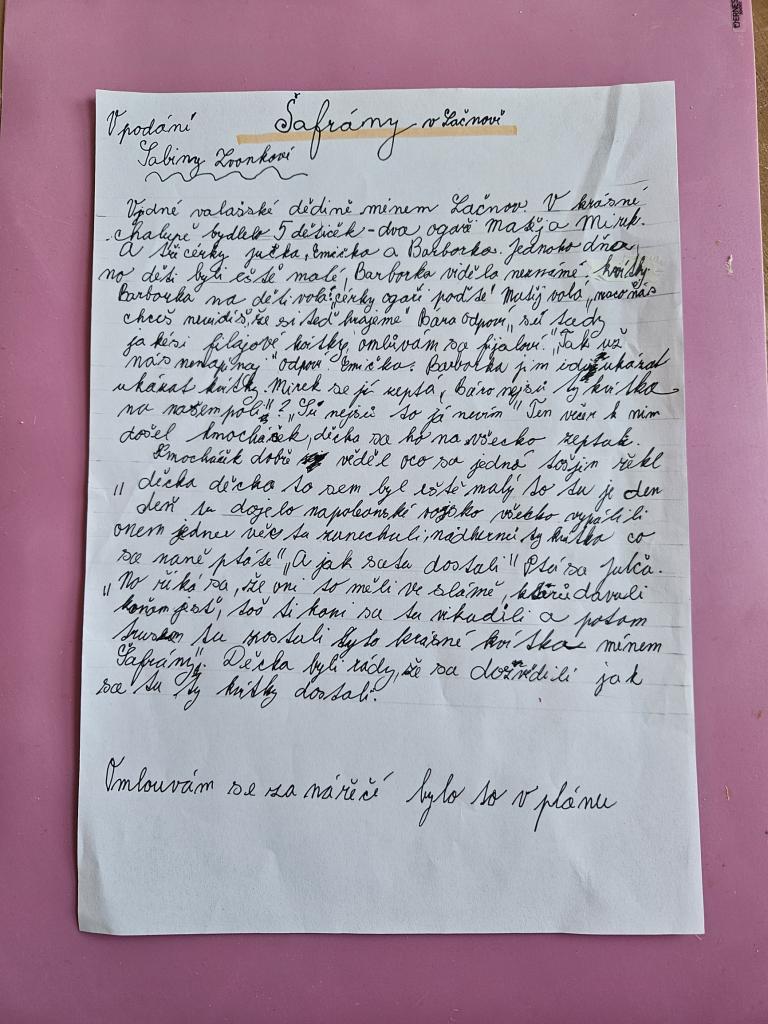 V podání Šafrány v Lačnově
Sabiny Zvonkové
V jedné valašské dědině ménem Lačnov. V krásné
chalupě bydlelo 5 děťiček - dva ogaři Matěj a Mirek.
A tři cérky Julča, Emička a Barborka. Jednoho dňa,
no děti byli eště malé, Barborka viděla neznámé kvítky.
Barborka na děti volá: "cérky ogaři poďte" Matěj volá "naco nás
chceš nevidíš, že si teď hrajeme" Bára odpoví "sú tady
jakési filajové kvítky, omlúvám sa fijalové." "Tak už
nás nenapínaj" odpoví Emička. Barborka jim ide ukázat
ukázat kvítky. Mirek se jí zeptá, "Báro nejsú ty kvítka
na našem poli"? "Sú nejsú to já nevím" Ten večer k nim
došel kmocháček, děcka sa ho na všecko zeptali.
Kmocháček dobře věděl oco sa jedná tož jim řékl
"děcka děcka to sem byl eště malý to tu je den
deň tu dojelo napoleonské vojsko všecko vypálili
onem jednu věc tu zanechali, nádherné ty kvítka co
sa naně ptáte" "A jak sa tu dostali" Ptá sa Julča.
"No říká sa, že oni to měli ve slámě, kterú dávali
koňom jest, tož ti koni sa tu vikadili a potom
tu zrostali tyto krásné kvítka ménem
Šafrány". Děcka byli rády, že sa dozvěděli jak
sa tu ty kvítky dostali.
Omlouvám se za nářečí bylo to v plánu